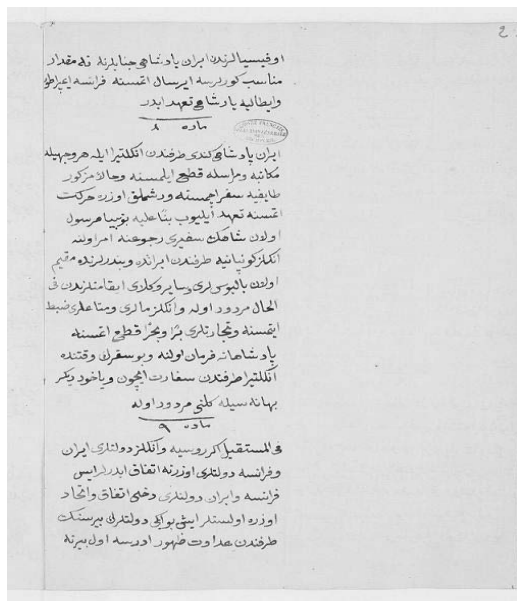 2
اوفيسيالرندن ايران پادشاهى جنابلرينه نه مقدار
مناسب كورلرسه ايرسال اتمسنه فرانسه ايمپراطورى
وايطاليه پادشاهى تعهد ايدر
ماده ٨
ايران پادشاهى كندى طرفندن انكلتيرا ايله هر وجهيله
مكاتبه ومراسله قطع ايلمسنه وحالا مزكور
طايفيه سفر اچمسنه ودشملق اوزره حركت
اتمسنه تعهد أيليوب بنا عليه بومبيا مرسول
اولان شاهك سفيرى رجوعنه امر اولنه
انكلز كونپانيه طرفندن ايرانده وبندرلرنده مقيم
اولان باليوسلرى وساير وكلاى ايقامتلرندن فى
الحال مردود اوله وانكلز مالرى ومتاعلرى ضبط
ايتمسنه وتجارتلرى برًا وبحرًا قطع اتمسنه
پادشاهانه فرمان اولنه وبو سفرك وقتنده
انكلتيرا طرفندن سفارت ايچون وياخود ديكر
بهانه سيله كلنى مردود اوله
ماده ٩
فى المستقبل اكر روسيه وانكلز دولتلرى ايران
وفرانسه دولتلرى اوزرنه اتفاق ايدرلر ايسى
فرانسه وايران دولتلرى دخى اتفاق واتحاد
اوزره اولسنلر ايشبو ايكى دولتلرك بيرسنك
طرفندن عداوت ظهور ادرسه اول بيرنه